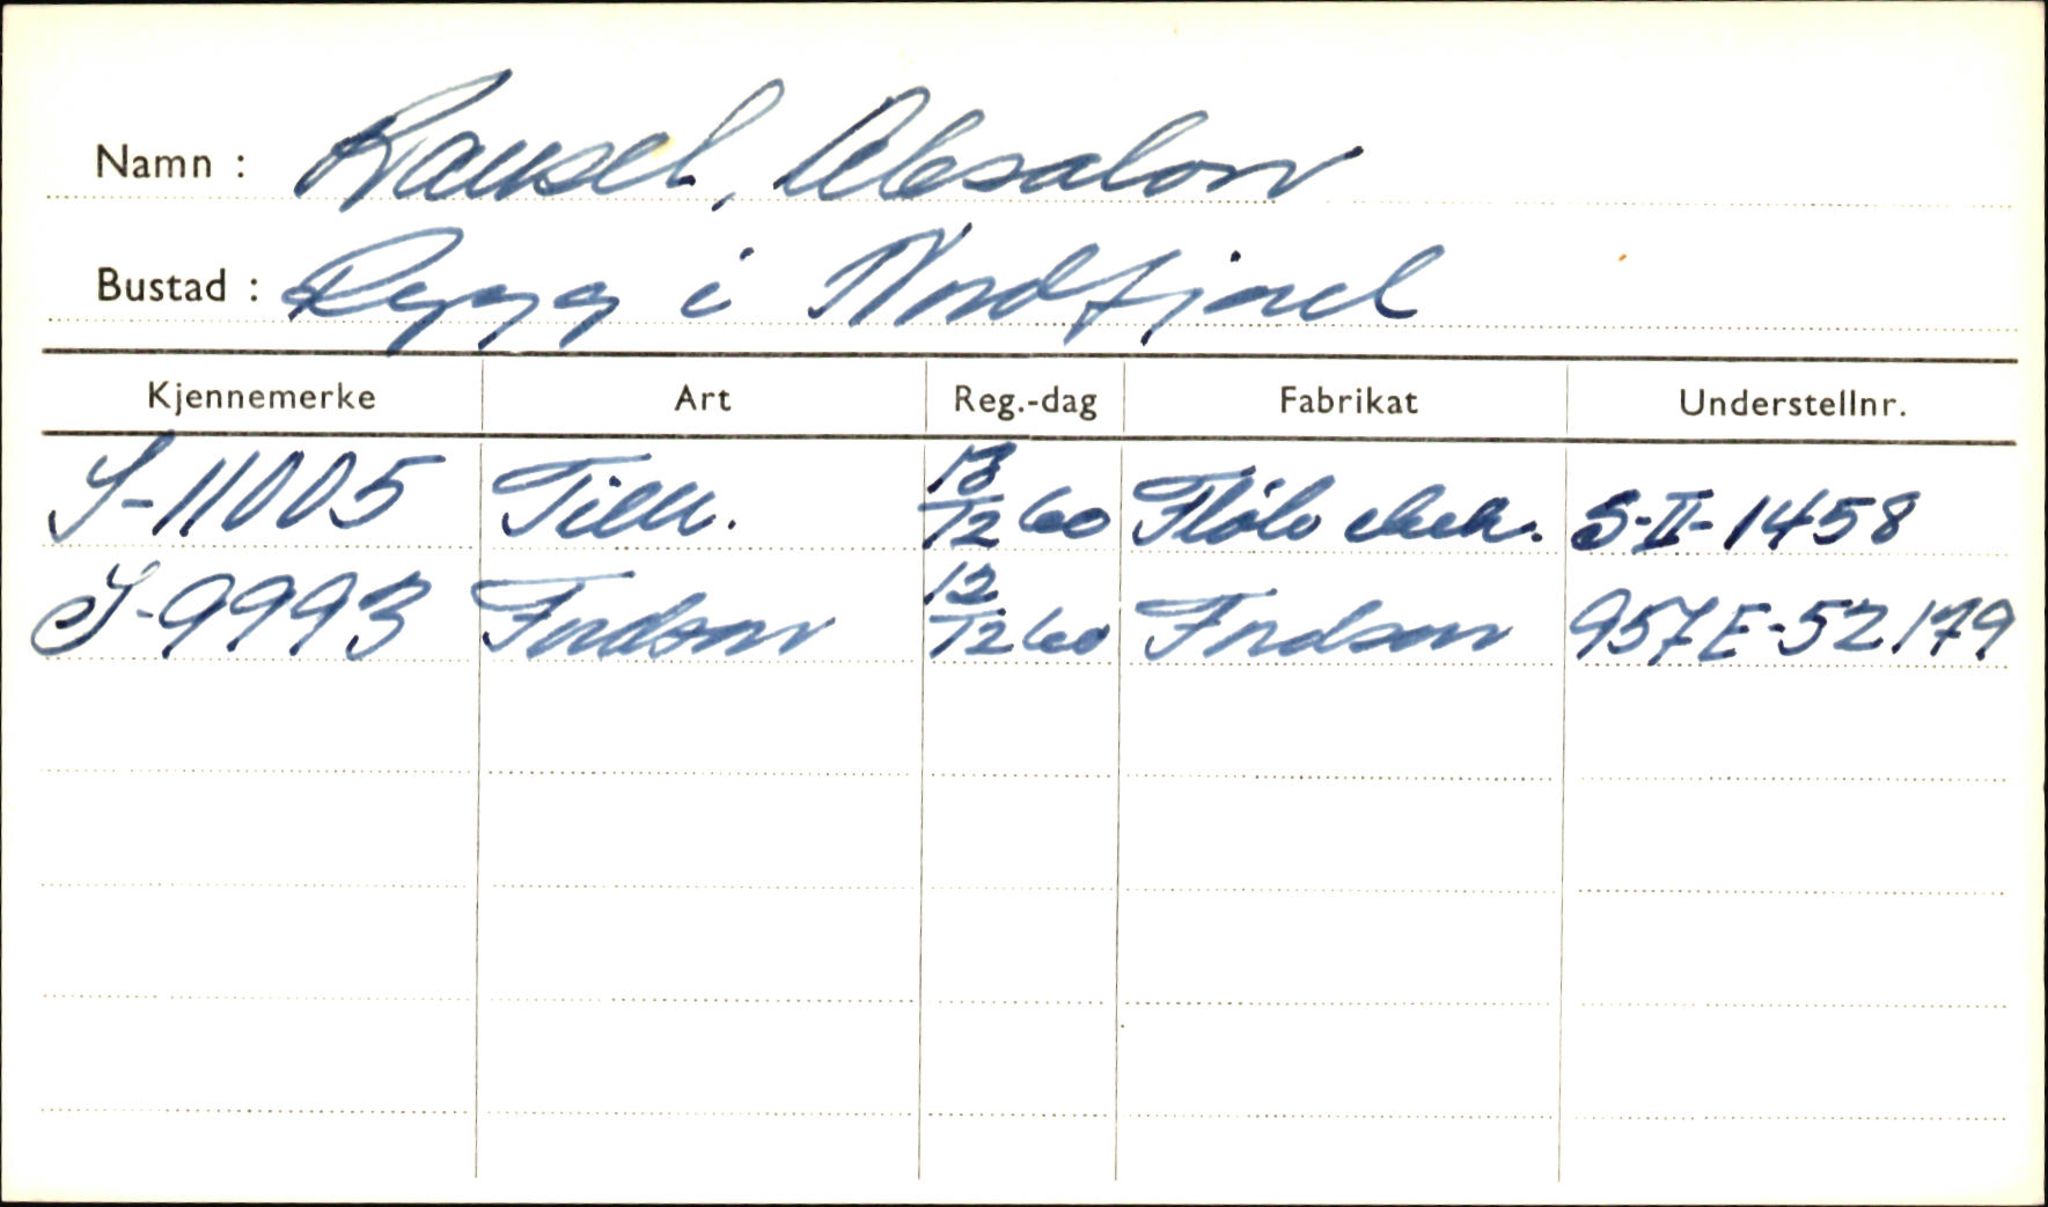 Namn : Rausel, Absalon
Bustad : Rygg i Nordfjord
Kjennemerke Art Reg.-dag Fabrikat Understellnr.
S-11005 Tilh. 13/12 60 Fløлo mek. S-II-1458
S-9993 Fordson 12/12 60 Fordson 957E-52179